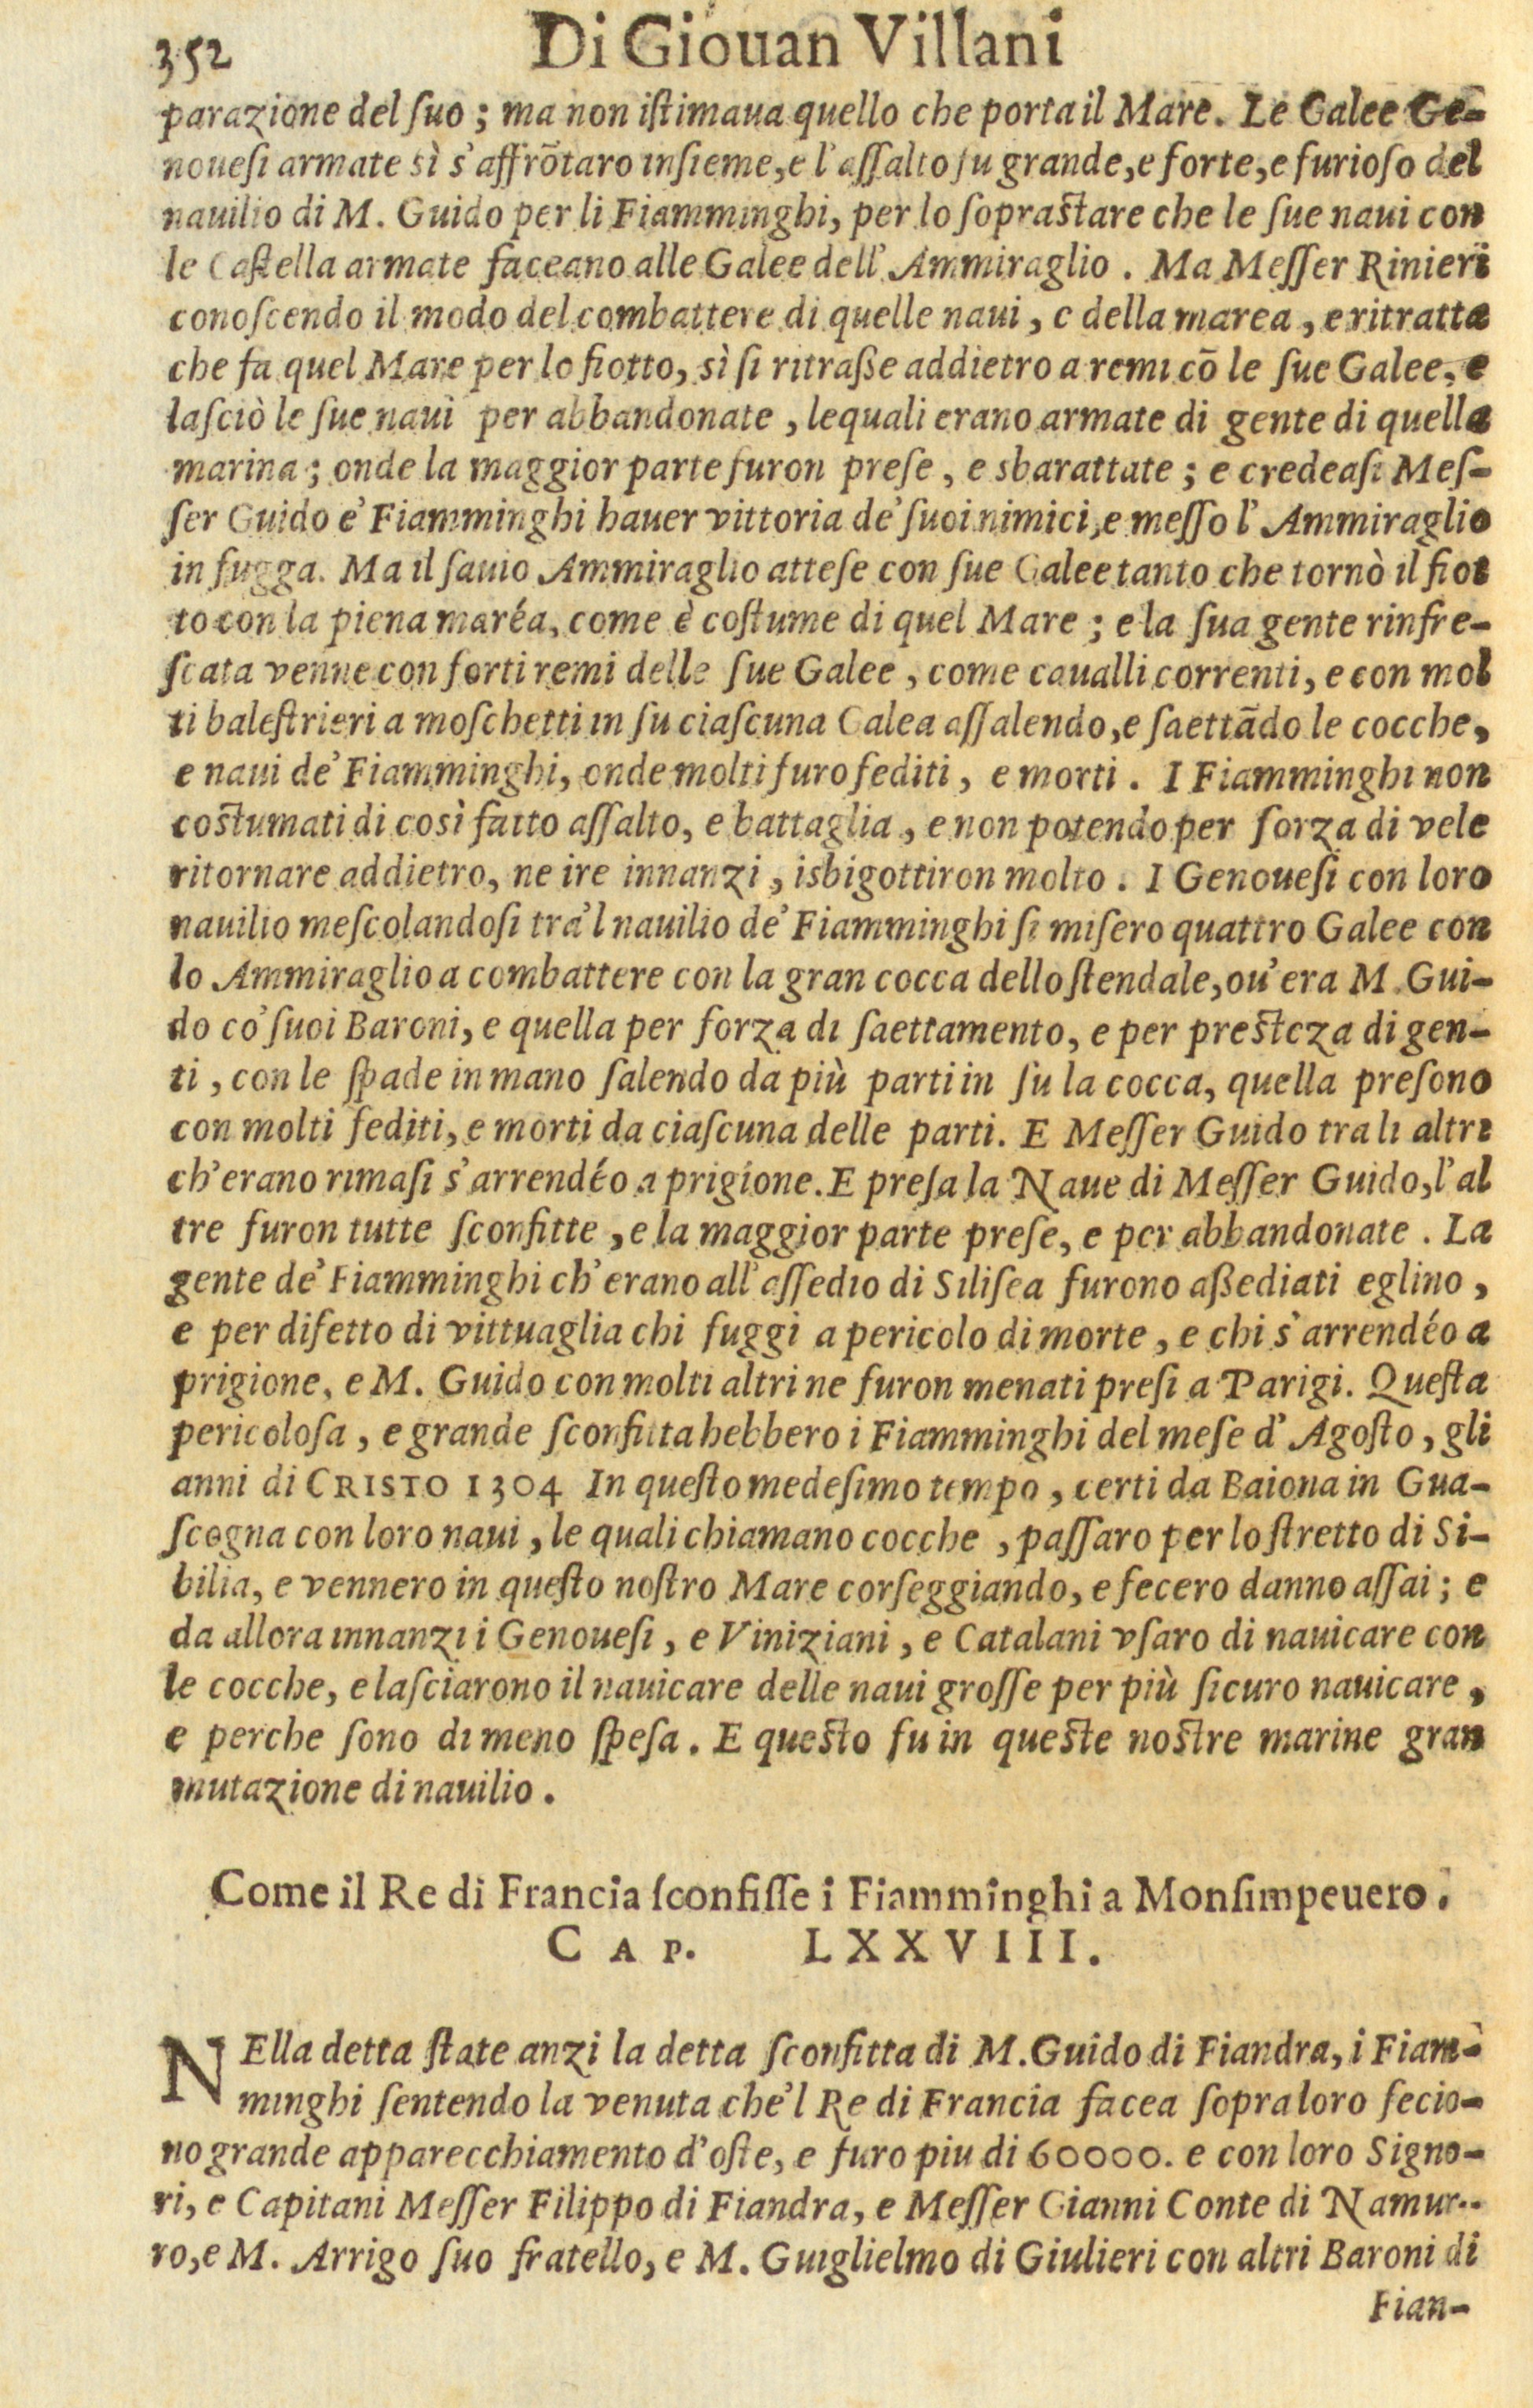 352 Di Giouan Villani
parazione del ſuo ; ma non iſtimaua quello che porta il Mare. Le Galee Ge-
noueſi armate sì s'affrõtaro inſieme, e l'aſſalto fu grande, e forte, e furioſo del
nauilio di M. Guido per li Fiamminghi, per lo ſopraſtare che le ſue naui con
le Caſtella armate faceano alle Galee dell' Ammiraglio . Ma Meſſer Rinieri
conoſcendo il modo del combattere di quelle naui , e della marea , e ritratta
che fa quel Mare per lo fiotto, sì ſi ritraße addietro a remi cõ le ſue Galee, e
laſciò le ſue naui per abbandonate , lequali erano armate di gente di quella
marina ; onde la maggior parte furon preſe , e sbarattate ; e credeaſi Meſ-
ſer Guido e' Fiamminghi hauer vittoria de' ſuoi nimici, e meſſo l' Ammiraglio
in fugga. Ma il ſauio Ammiraglio atteſe con ſue Galee tanto che tornò il fiot
to con la piena maréa, come è coſtume di quel Mare ; e la ſua gente rinfre-
ſcata venne con forti remi delle ſue Galee , come caualli correnti, e con mol
ti baleſtrieri a moſchetti in ſu ciaſcuna Galea aſſalendo, e ſaettãdo le cocche,
e naui de' Fiamminghi, onde molti furo fediti , e morti . I Fiamminghi non
coſtumati di così fatto aſſalto, e battaglia , e non potendo per forza di vele
ritornare addietro, ne ire innanzi , isbigottiron molto . I Genoueſi con loro
nauilio meſcolandoſi tra'l nauilio de' Fiamminghi ſi miſero quattro Galee con
lo Ammiraglio a combattere con la gran cocca dello ſtendale, ou' era M. Gui-
do co' ſuoi Baroni, e quella per forza di ſaettamento, e per preſteza di gen-
ti , con le ſpade in mano ſalendo da più parti in ſu la cocca, quella preſono
con molti fediti, e morti da ciaſcuna delle parti. E Meſſer Guido tra li altri
ch'erano rimaſi s'arrendéo a prigione. E preſa la Naue di Meſſer Guido, l'al
tre furon tutte ſconfitte , e la maggior parte preſe, e per abbandonate . La
gente de' Fiamminghi ch'erano all' aſſedio di Siliſea furono aßediati eglino ,
e per difetto di vittuaglia chi fuggi a pericolo di morte , e chi s'arrendéo a
prigione, e M. Guido con molti altri ne furon menati preſi a Parigi. Queſta
pericoloſa , e grande ſconfitta hebbero i Fiamminghi del meſe d' Agoſto , gli
anni di CRISTO 1304 In queſto medeſimo tempo , certi da Baiona in Gua-
ſcogna con loro naui , le quali chiamano cocche , paſſaro per lo ſtretto di Si-
bilia, e vennero in queſto noſtro Mare corſeggiando, e fecero danno aſſai ; e
da allora innanzi i Genoueſi , e Viniziani , e Catalani vſaro di nauicare con
le cocche, e laſciarono il nauicare delle naui groſſe per più ſicuro nauicare ,
e perche ſono di meno ſpeſa . E queſto fu in queſte noſtre marine gran
mutazione di nauilio .
Come il Re di Francia ſconfiſſe i Fiamminghi a Monſimpeuero.
CAP. LXXVIII.
NElla detta ſtate anzi la detta ſconfitta di M. Guido di Fiandra, i Fiam-
minghi ſentendo la venuta che'l Re di Francia facea ſopra loro fecio-
no grande apparecchiamento d'oſte, e furo piu di 60000. e con loro Signo-
ri, e Capitani Meſſer Filippo di Fiandra, e Meſſer Gianni Conte di Namur-
ro, e M. Arrigo ſuo fratello, e M. Guiglielmo di Giulieri con altri Baroni di
Fian-